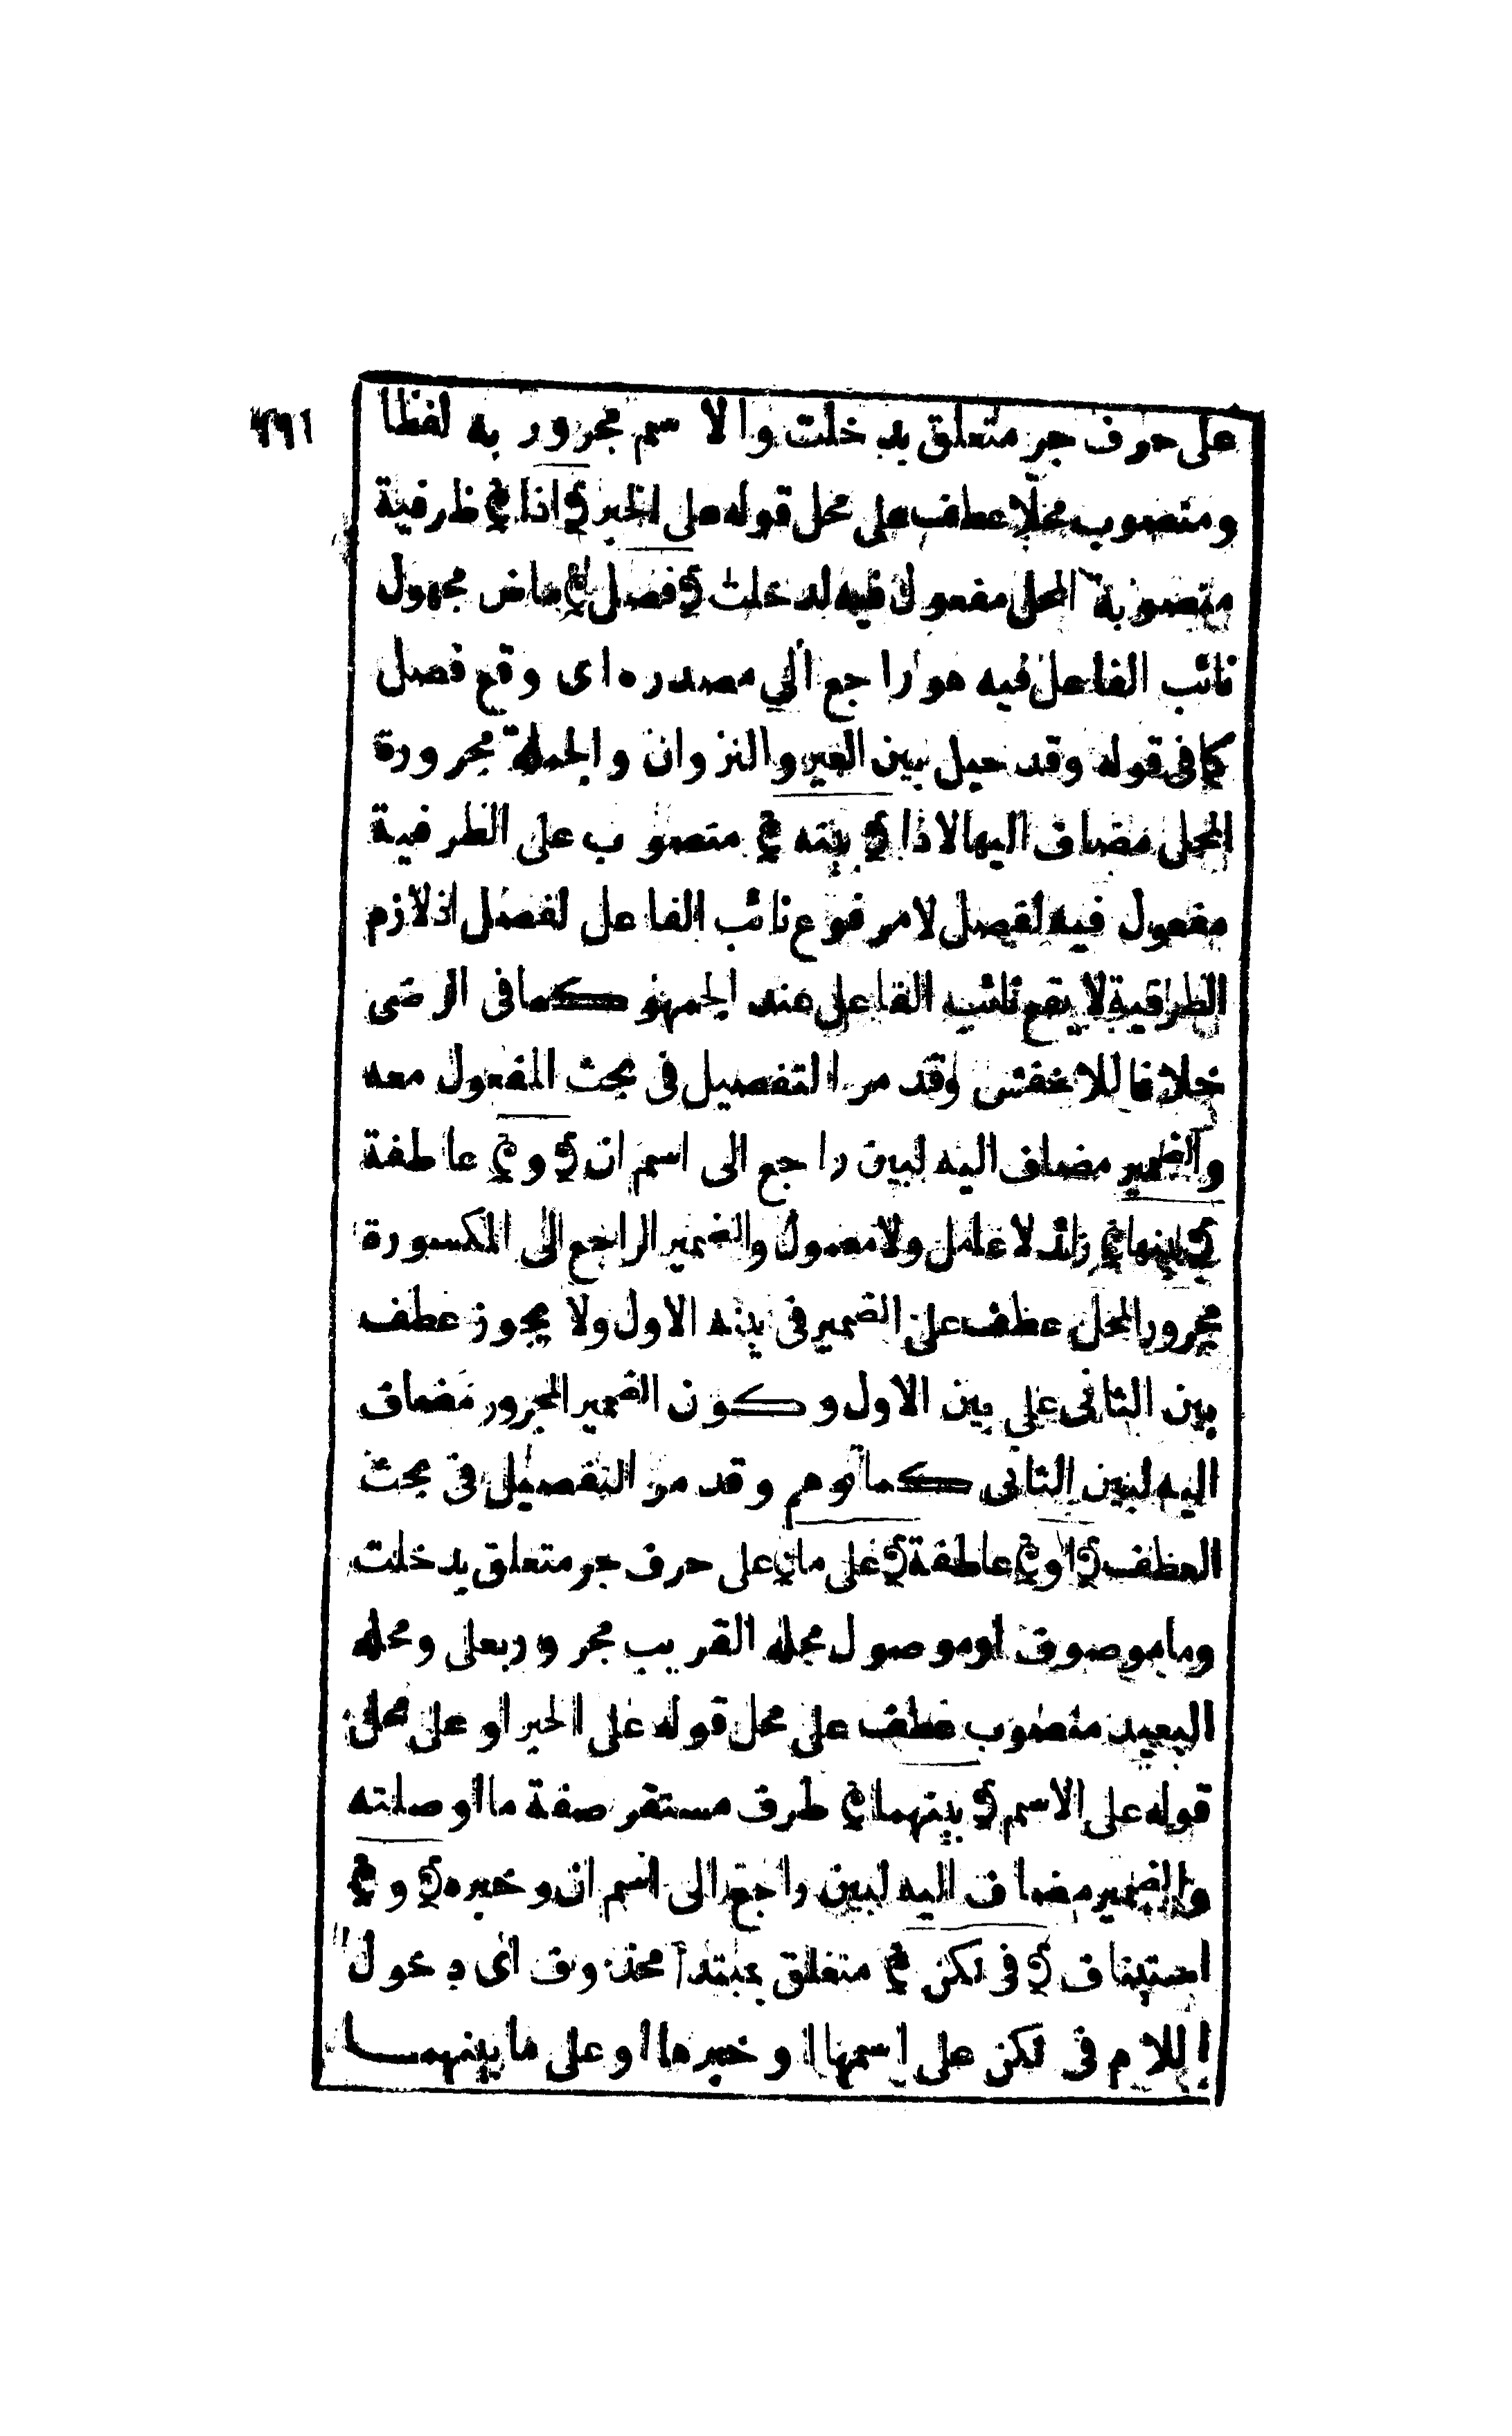 على حرف جر متعلق بدخلت والاسم مجرور به لفظا
ومنصوب محلا عطف على محل قوله على الخبر ﴿ اذا ﴾ ظرفية
منصوبة المحل مفعول فيه لدخلت ﴿ فصل ﴾ ماض مجهول
نائب الفاعل فيه هو راجع الى مصدره اى وقع فصل
كما فى قوله وقد حيل بين العير والنزوان والجملة مجرورة
المحل مضاف اليها لاذا ﴿ بينه ﴾ منصوب على الظرفية
مفعول فيه لفصل لا مرفوع نائب الفاعل لفصل اذ لازم
الظرفية لا يقع نائب الفاعل عند الجمهور كما فى الرضى
خلافا للاخفش وقد مر التفصيل فى بحث المفعول معه
والضمير مضاف اليه لبين راجع الى اسم ان ﴿ و ﴾ عاطفة
﴿ بينها ﴾ زائد لا عامل ولا معمول والضمير الراجع الى المكسورة
مجرور المحل عطف على الضمير فى بينه الاول ولا يجوز عطف
بين الثانى على بين الاول وكون الضمير المجرور مضاف
اليه لبين الثانى كما توهم وقد مر التفصيل فى بحث
العطف ﴿ او ﴾ عاطفة ﴿ على ما ﴾ على حرف جر متعلق بدخلت
وما موصوف او موصول محله القريب مجرور بعلى ومحله
البعيد منصوب عطف على محل قوله على الخبر او على محل
قوله على الاسم ﴿ بينهما ﴾ ظرف مستقر صفة ما او صلته
والضمير مضاف اليه لبين راجع الى اسم ان وخبره ﴿ و ﴾
استيناف ﴿ فى لكن ﴾ متعلق بمبتدأ محذوف اى دخول
اللام فى لكن على اسمها او خبرها او على ما بينهما